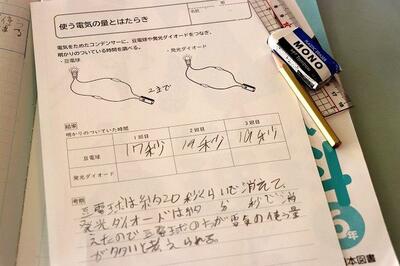 使う電気の量とはたらき
電気をためたコンデンサーに、豆電球や発光ダイオードをつなぎ、
明かりのついている時間を調べる。
・豆電球
・発光ダイオード
2まで
結果
明かりのついていた時間
1回目 2回目 3回目
豆電球 17秒 19秒 19秒
発光ダイオード
考察
豆電球は約20秒くらいで消えて、
発光ダイオードは約 分 秒で消
えたので豆電球のほうが電気の使う量
が多いと考えられる。
MONO
年
本図書